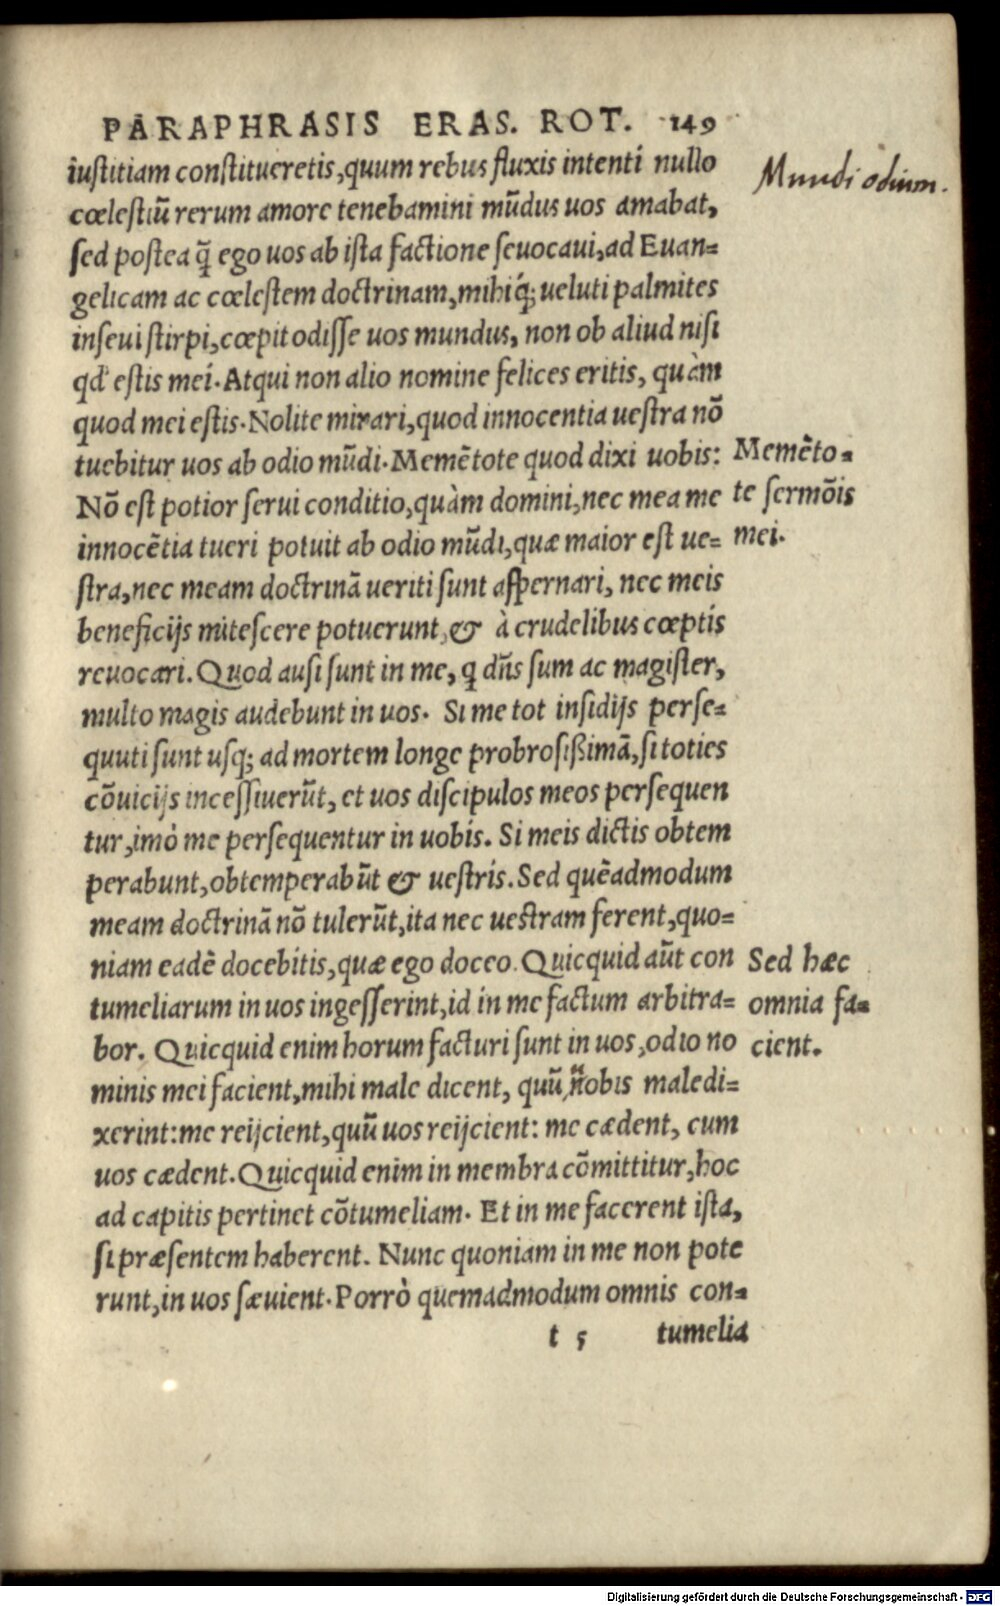 PARAPHRASIS ERAS. ROT. 149
iustitiam constitueretis, quum rebus fluxis intenti nullo
cœlestiũ rerum amore tenebamini mũdus uos amabat,
sed postea q̃ ego uos ab ista factione seuocaui, ad Euan-
gelicam ac cœlestem doctrinam, mihiq́; ueluti palmites
inseui stirpi, cœpit odisse uos mundus, non ob aliud nisi
qd' estis mei. Atqui non alio nomine felices eritis, quàm
quod mei estis. Nolite mirari, quod innocentia uestra nõ
tuebitur uos ab odio mũdi. Memẽtote quod dixi uobis:
Nõ est potior serui conditio, quàm domini, nec mea me
innocẽtia tueri potuit ab odio mũdi, quæ maior est ue-
stra, nec meam doctrinã ueriti sunt aspernari, nec meis
beneficijs mitescere potuerunt, & à crudelibus cœptis
reuocari. Quod ausi sunt in me, q dñs sum ac magister,
multo magis audebunt in uos. Si me tot insidijs perse-
quuti sunt usq; ad mortem longe probrosißimã, si toties
cõuicijs incessiuerũt, et uos discipulos meos persequen
tur, imò me persequentur in uobis. Si meis dictis obtem
perabunt, obtemperabũt & uestris. Sed quẽadmodum
meam doctrinã nõ tulerũt, ita nec uestram ferent, quo-
niam eadẽ docebitis, quæ ego doceo. Quicquid aũt con
tumeliarum in uos ingesserint, id in me factum arbitra-
bor. Quicquid enim horum facturi sunt in uos, odio no
minis mei facient, mihi male dicent, quũ uobis maledi-
xerint: me reijcient, quũ uos reijcient: me cædent, cum
uos cædent. Quicquid enim in membra cõmittitur, hoc
ad capitis pertinet cõtumeliam. Et in me facerent ista,
si præsentem haberent. Nunc quoniam in me non pote
runt, in uos sæuient. Porrò quemadmodum omnis con-
t 5 tumelia
Mundi odium.
Memẽto-
te sermõis
mei.
Sed hæc
omnia fa-
cient.
Digitalisierung gefördert durch die Deutsche Forschungsgemeinschaft - DFG